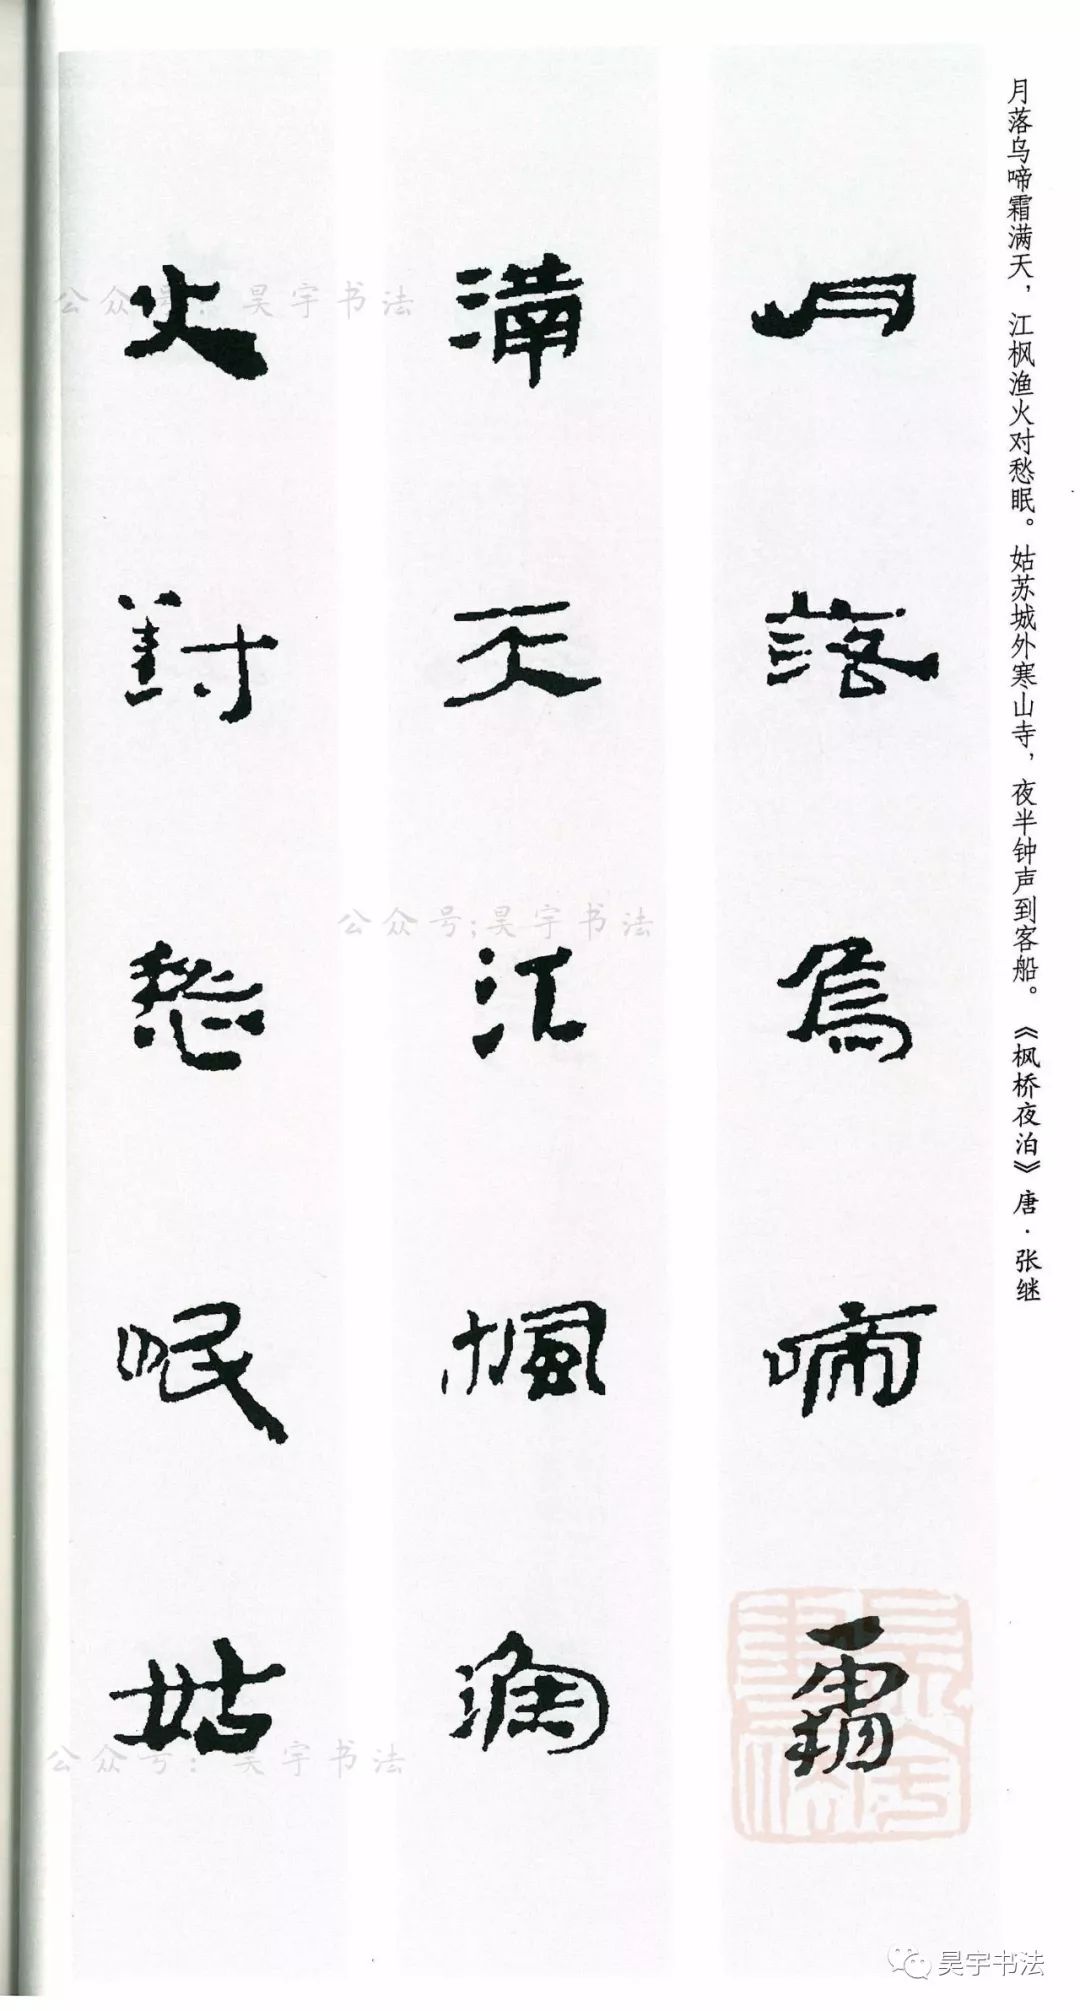 月落乌啼霜满天，江枫渔火对愁眠。姑苏城外寒山寺，夜半钟声到客船。《枫桥夜泊》唐·张继
月落烏啼霜
满天江楓漁
火對愁眠姑
公众号：昊宇书法
公众号;昊宇书法
公众号：昊宇书法
昊宇书法